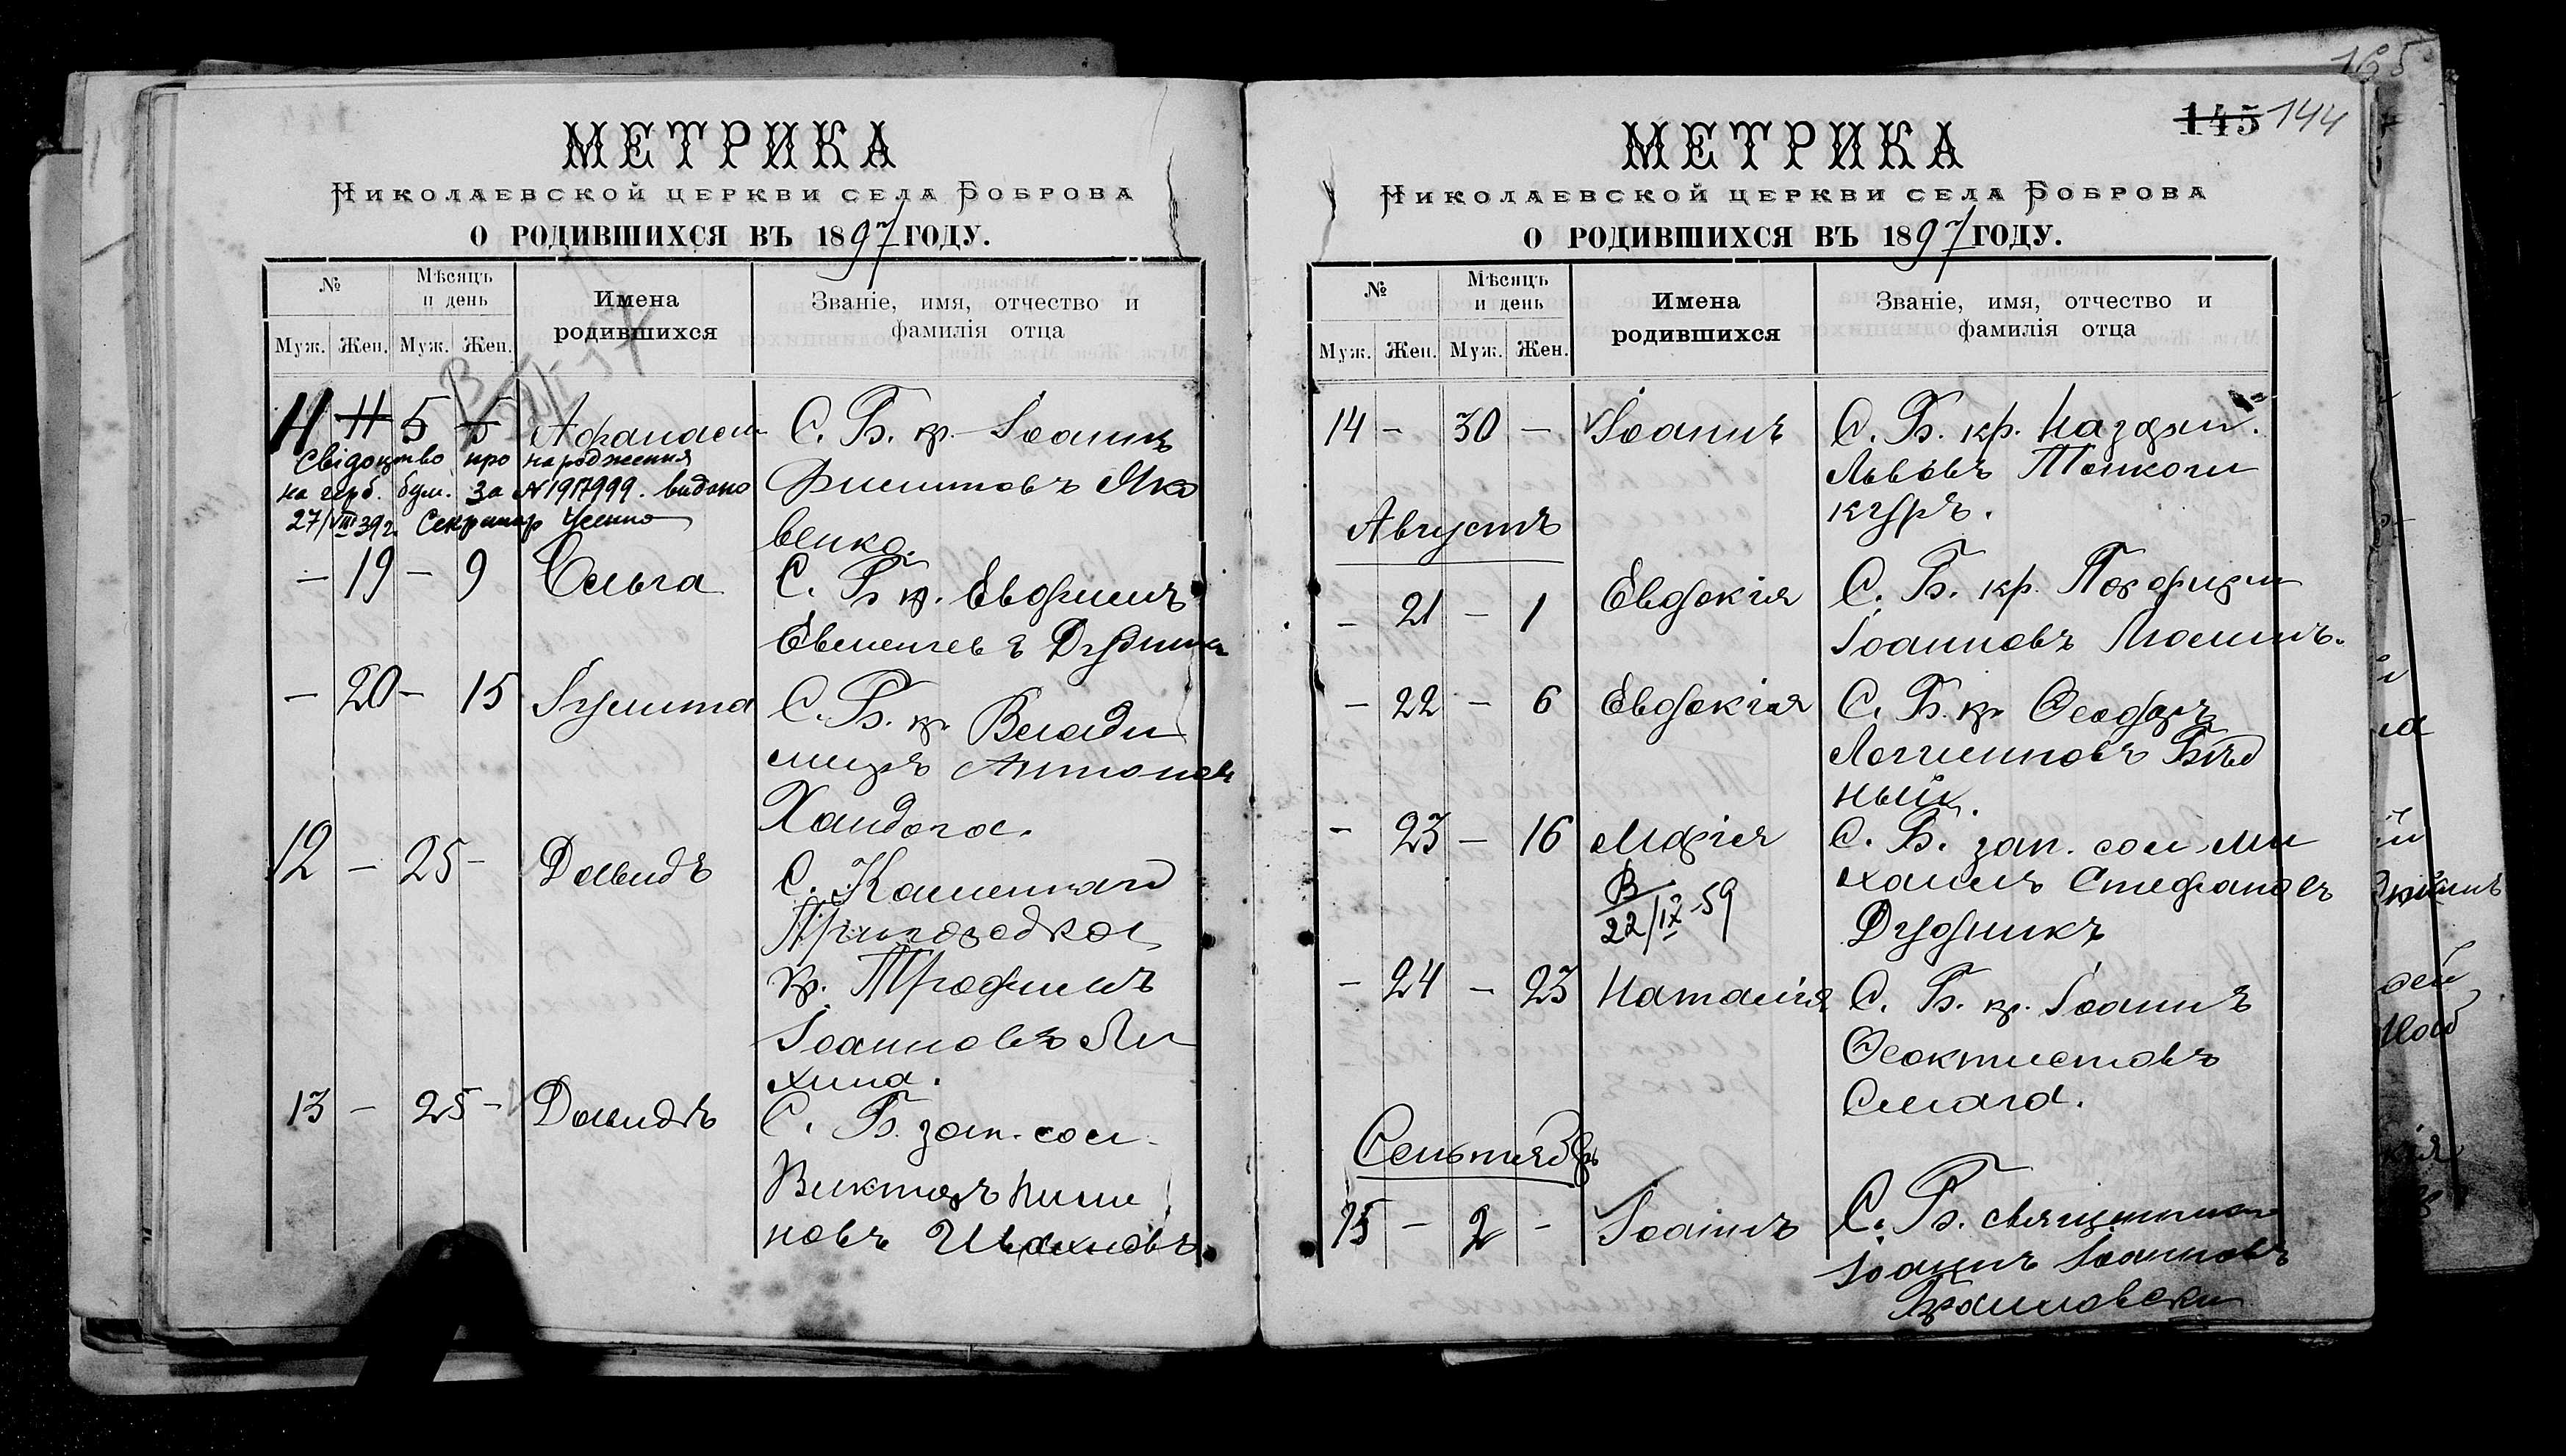 МЕТРИКА
Николаевской церкви села Боброва
О РОДИВШИХСЯ ВЪ 1897 ГОДУ.
№
Мѣсяцъ и день
Имена родившихся
Званіе, имя, отчество и фамилія отца
Муж. Жен. Муж. Жен.
11 11 5 5 Афанасій С. Б. кр. Іоаннъ
Филиповъ Яко
венко.
Свідоцтво про народження
на герб. бум. за № 1917999. видано
27/VIII 39 г. Секретар
– 19 – 9 Ольга С. Б. кр. Евфимъ
Дудника
– 20 – 15 Іулитта С. Б. кр. Влади
миръ Антоновъ
Хандога.
12 – 25 – Давидъ С. Каменнаго
кр. Трофимъ
Іоанновъ Ли
хина.
13 – 25 – Давидъ С. Б. зап. сол.
Викторъ
новъ
165
145 144
МЕТРИКА
Николаевской церкви села Боброва
О РОДИВШИХСЯ ВЪ 1897 ГОДУ.
№
Мѣсяцъ и день
Имена родившихся
Званіе, имя, отчество и фамилія отца
Муж. Жен. Муж. Жен.
14 – 30 – Іоаннъ С. Б. кр. Назарій
Львовъ Тонкоши
куръ.
Августъ
– 21 – 1 Евдокія С. Б. кр. Порфирій
Іоанновъ
– 22 – 6 Евдокія С. Б. кр. Ѳеодоръ
Логгиновъ Бѣд
ный.
– 23 – 16 Марія С. Б. зап. сол. Ми
хаилъ Стефановъ
Дудникъ
В
22/IX-59
– 24 – 23 Наталія С. Б. кр. Іоаннъ
Ѳеоктистовъ
Смага.
Сентябрь
15 – 2 – Іоаннъ С. Б. священникъ
Іоаннъ Іоанновъ